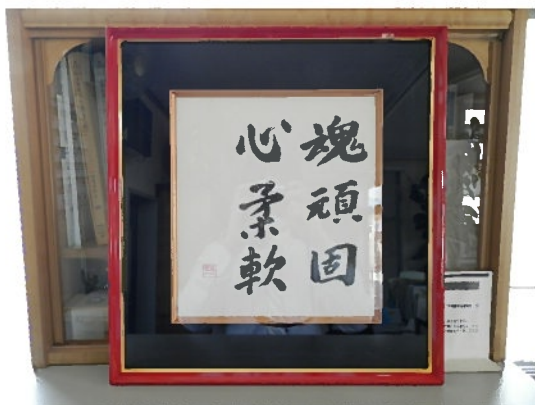 魂頑固
心柔軟